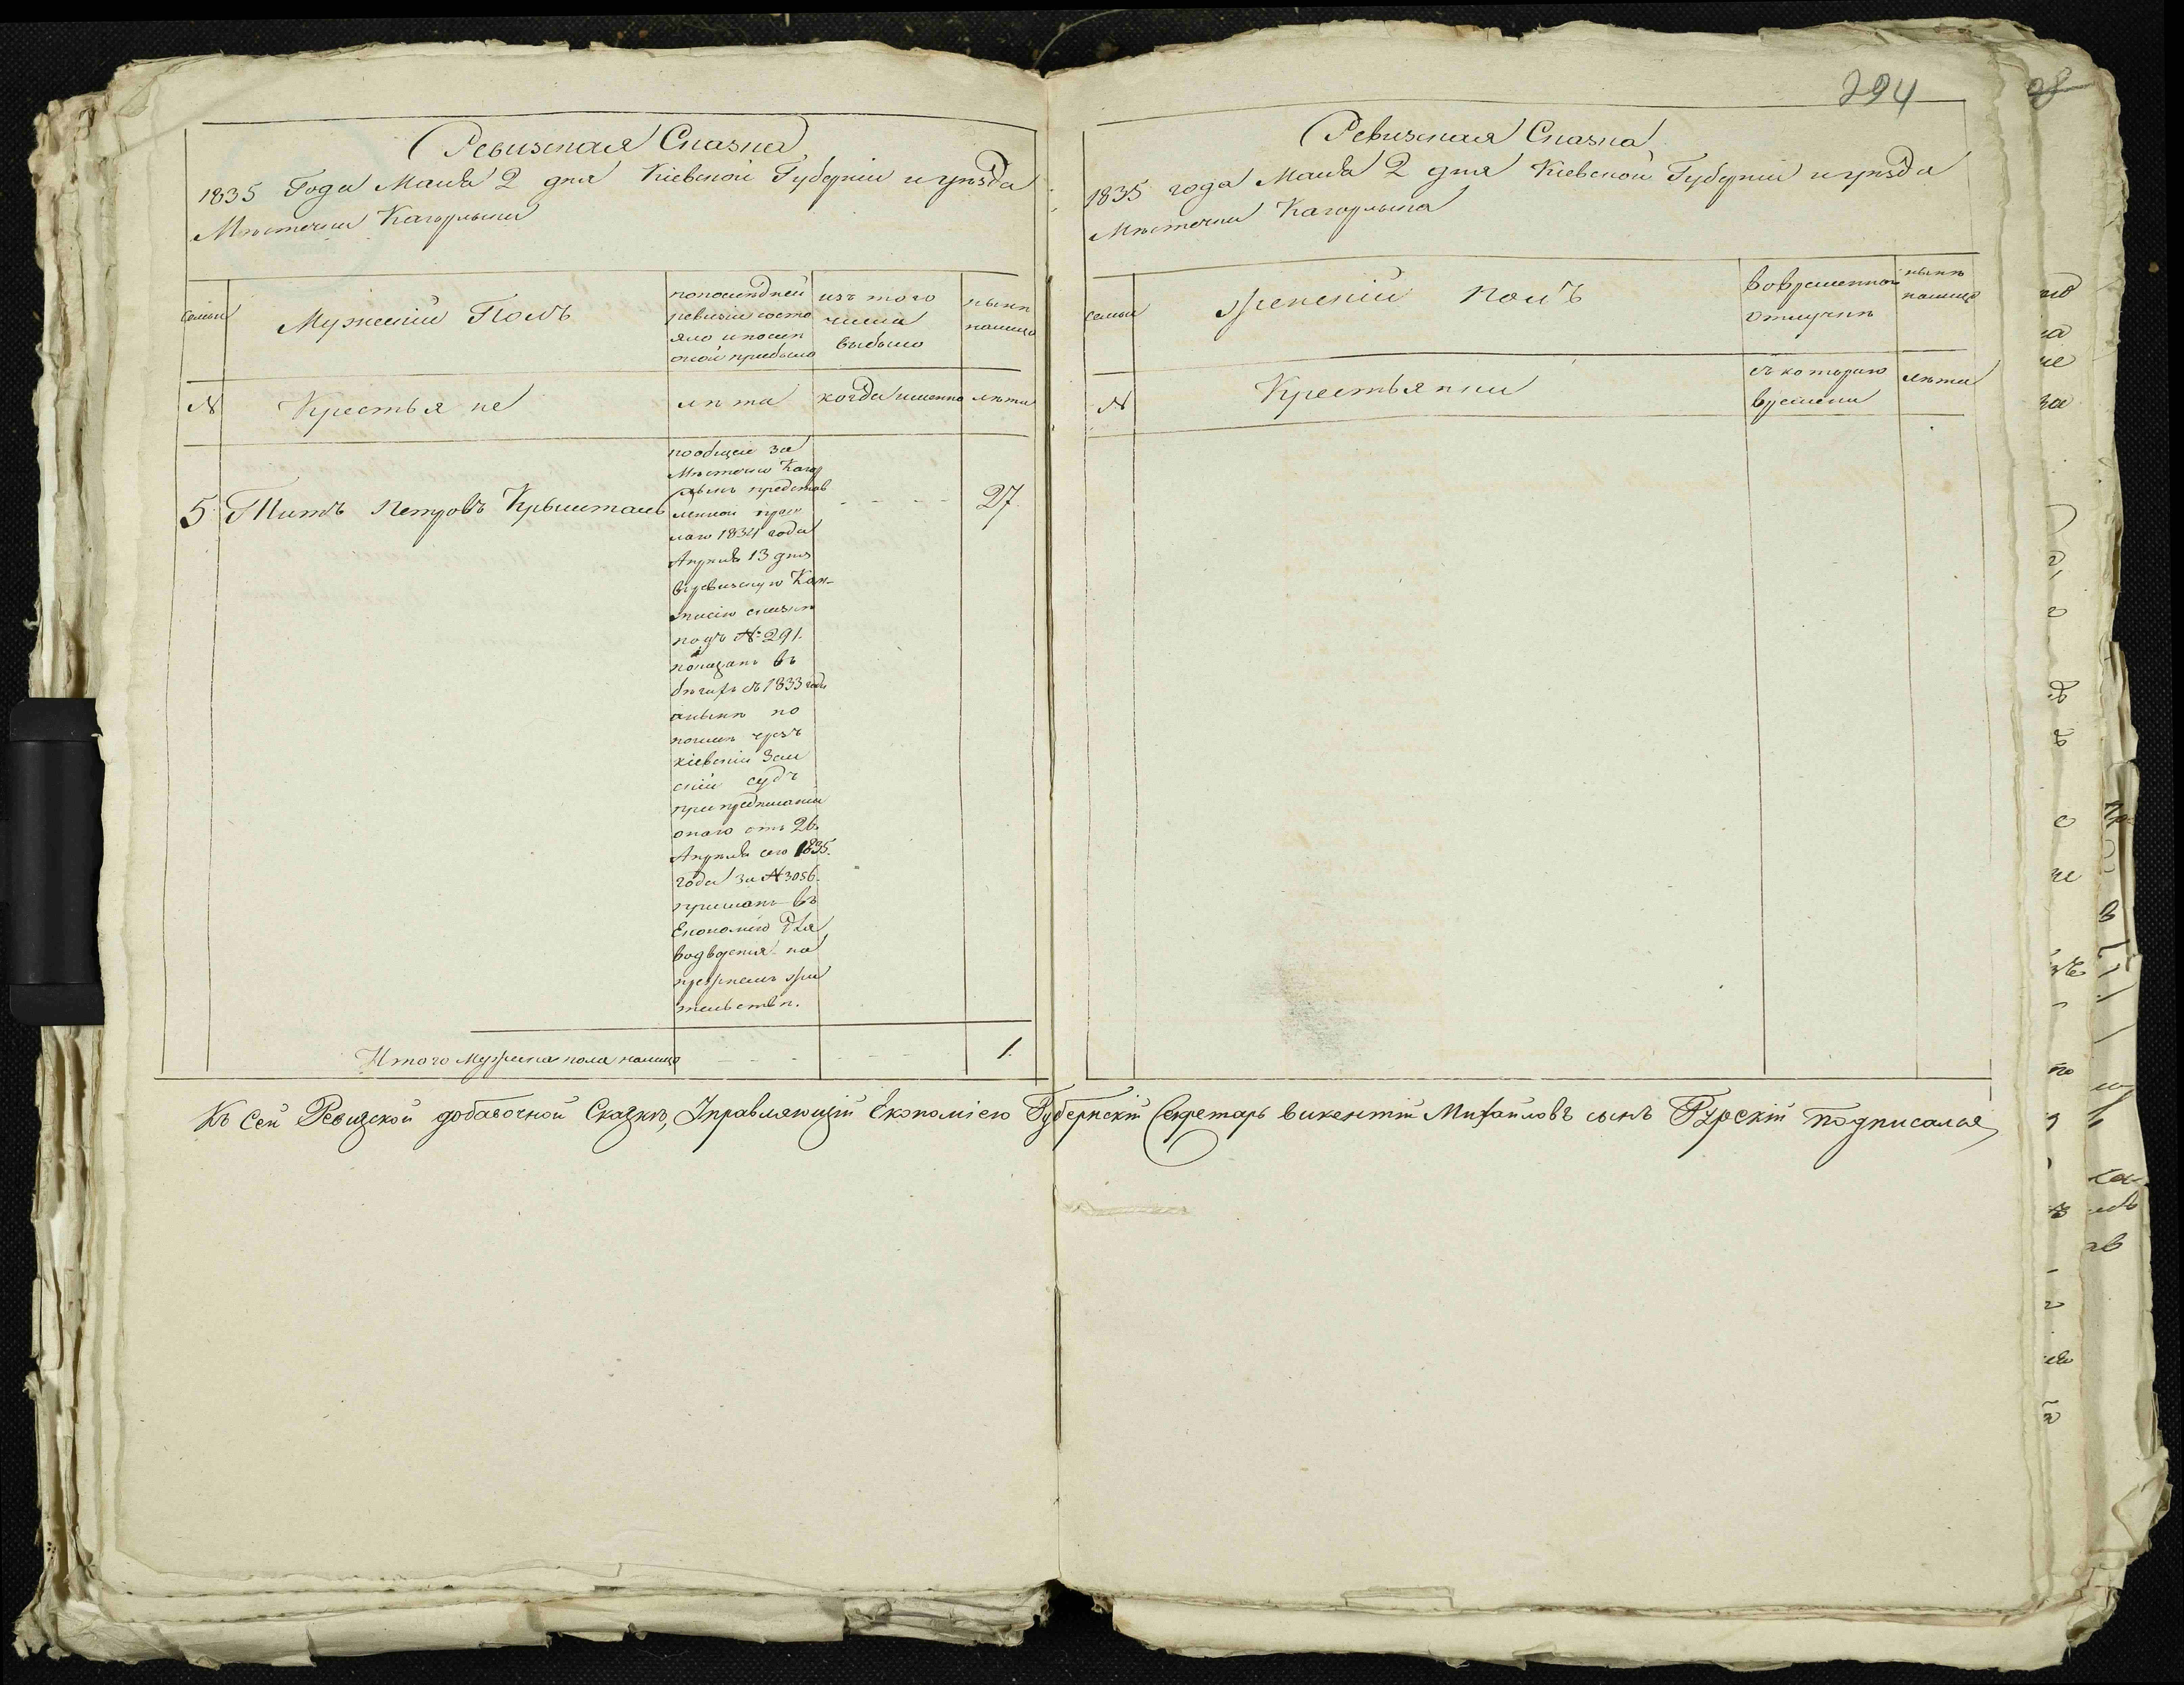 294
Ревизская Сказка
1835 Года Маія 2 дня Кіевской Губерніи и уѣзда
Мѣстечка Кагарлыка
Семьи
Мужескій Полъ
по последней
ревизіи состо
яло и после
оной прибыло
изъ того
числа
выбыло
нынѣ
налицо
№
Крестьяне
лѣта
когда именно
лѣта
5
Титъ Петровъ
27
по общей за
Мѣстечко Кагар
лыкъ представ
ленной прош
лаго 1834 года
Апрѣля 13 дня
в ревизскую Ком-
мисію сказкѣ
подъ № 291.
показанъ въ
бѣгахъ съ 1833 года
а нынѣ по
поимкѣ чрезъ
Кіевскій Зем
скій судъ
при предписаніи
онаго отъ 26.
Апрѣля сего 1835.
года за № 3056.
присланъ въ
Економію для
водворенія на
прежнемъ жи
тельствѣ.
Итого Мужеска пола налицо
1.
Ревизская Сказка
1835 года Маія 2 дня Кіевской Губерніи и уѣзда
Мѣстечка Кагарлыка
семьи
Женскій полъ
во временной
отлучкѣ
нынѣ
налицо
№
Крестьянки
съ котораго
времени
лѣта
Къ сей Ревизской добавочной Сказкѣ, Управляющій Економіею Губернскій Секретарь Викентій Михайловъ сынъ подписался